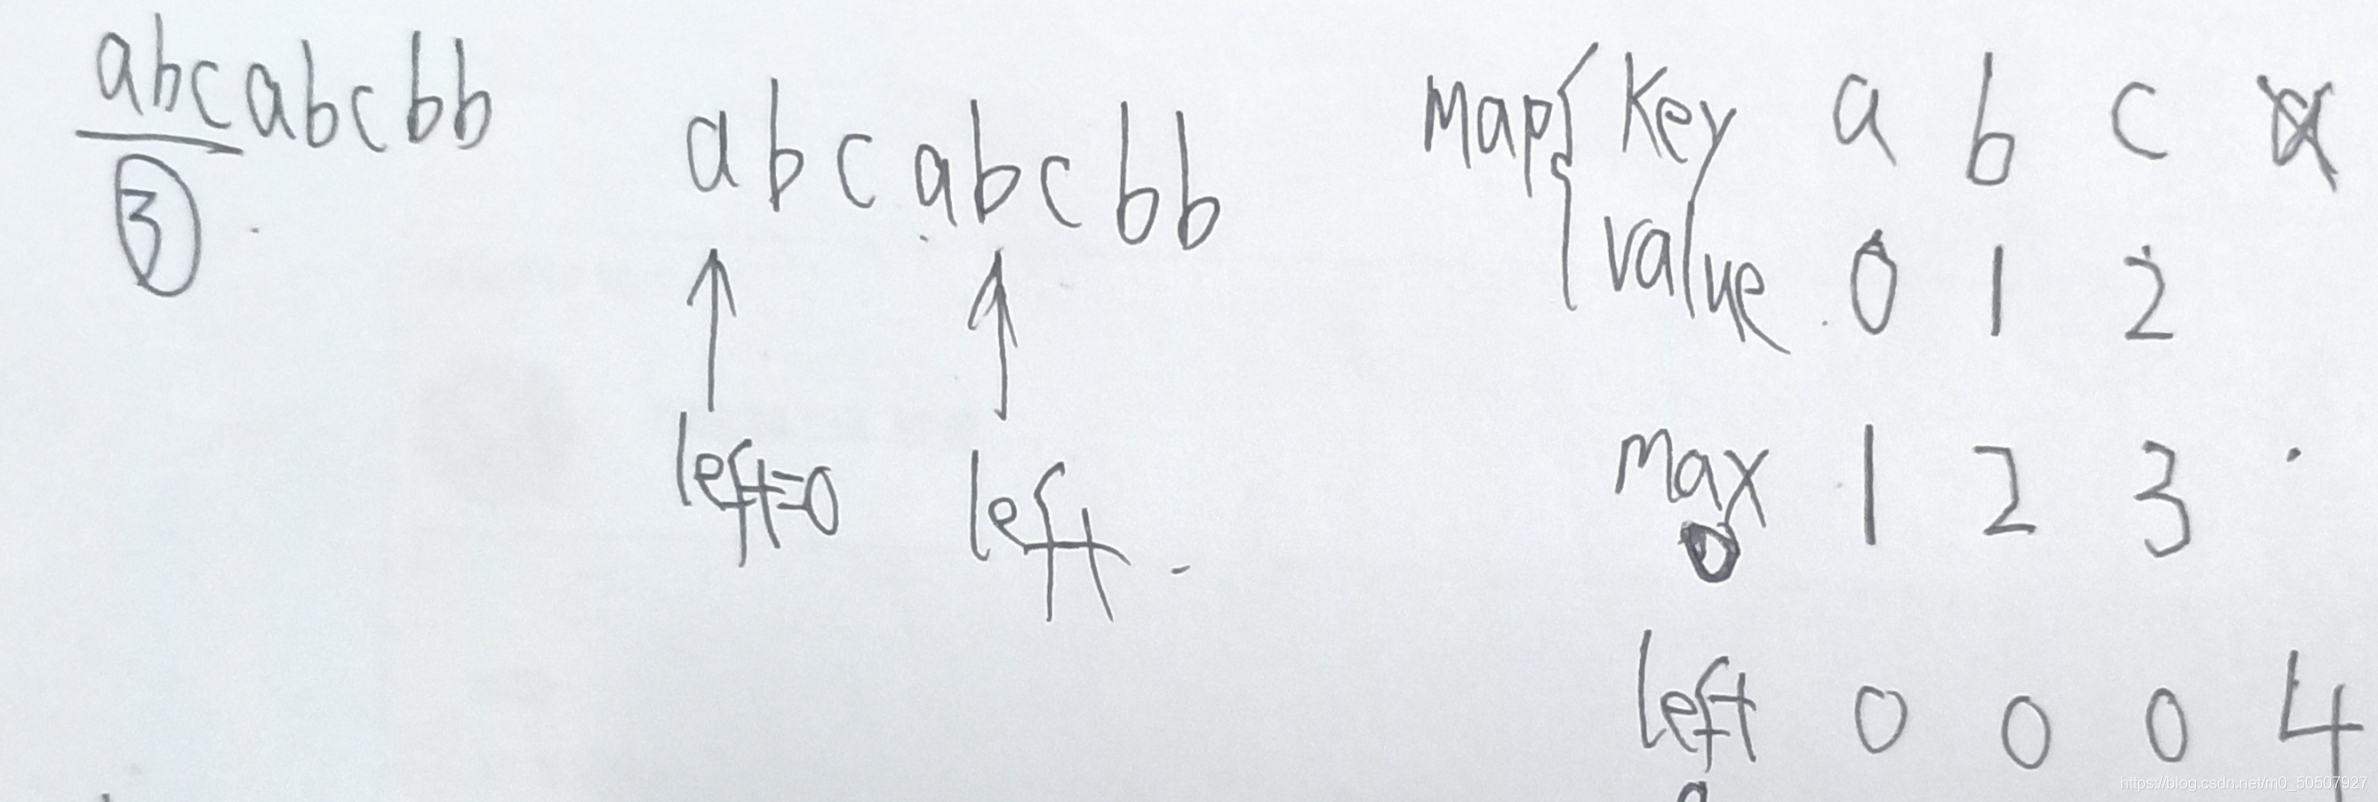 abcabcbb
3
abcabcbb
left=0 left
map{ key a b c
value 0 1 2
max 1 2 3
0
left 0 0 0 4
https://blog.csdn.net/m0_50507927